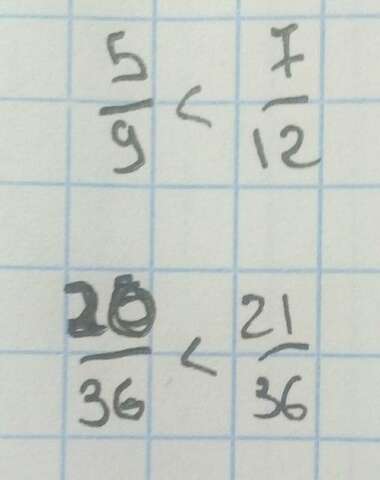 5/9 < 7/12
20/36 < 21/36